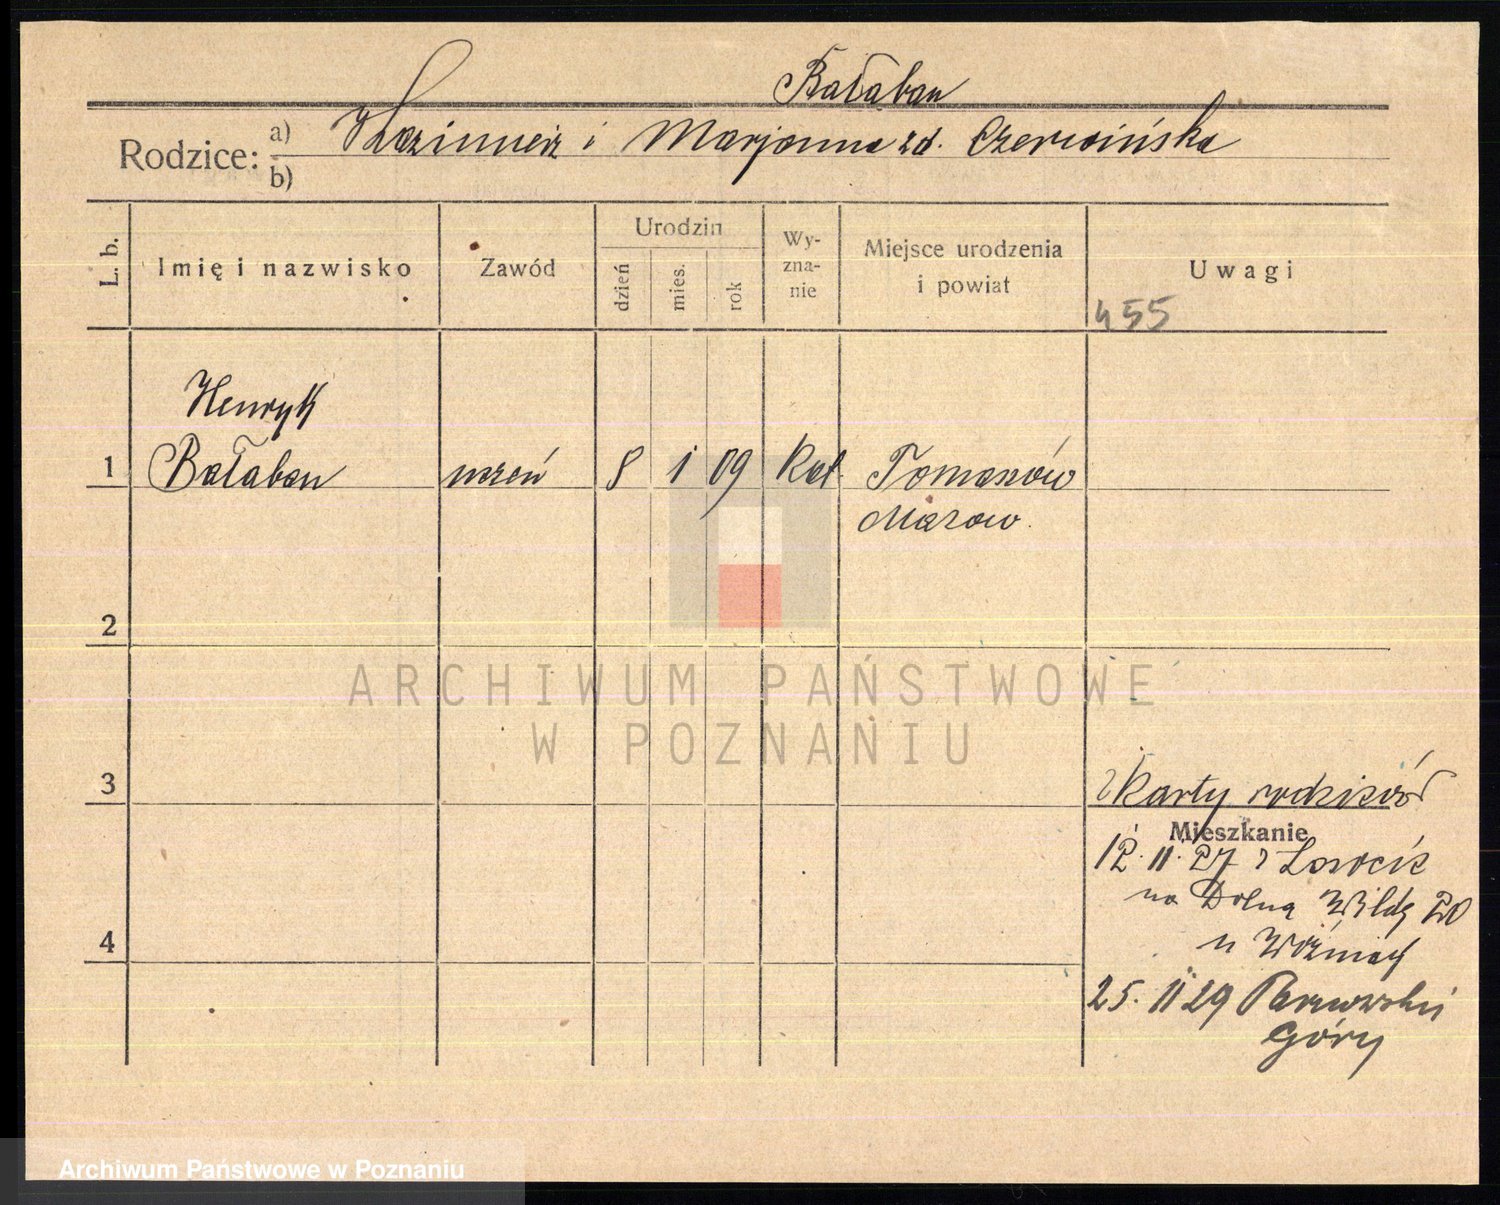 Bałaban
Rodzice: a) Kazimierz i Marjanna zd. Czerwińska
b)
L. b.
Imię i nazwisko
Zawód
Urodzin
dzień
mies.
rok
Wy-
zna-
nie
Miejsce urodzenia
i powiat
Uwagi
455
Henryk
1 Bałaban uczeń 8 1 09 Kat. Tomaszów
Mazow.
2
ARCHIWUM PAŃSTWOWE
W POZNANIU
3
z karty rodziców
Mieszkanie
12. 11. 27 z
na Dolną Wildę 20
u Woźniak
4
25. 11 29
Góry
Archiwum Państwowe w Poznaniu